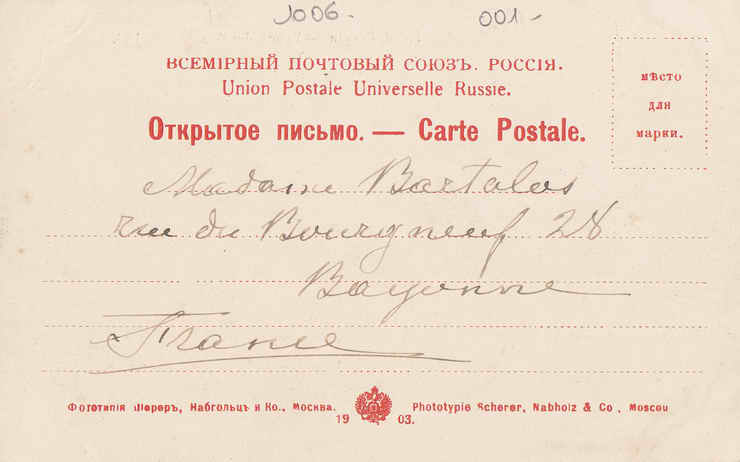 1006. 001-
ВСЕМІРНЫЙ ПОЧТОВЫЙ СОЮЗЪ. РОССІЯ.
Union Postale Universelle Russie.
Открытое письмо. — Carte Postale.
мѣсто
для
марки.
Madame Bartalos
rue du Bourgneuf 28
Bayonne
France
Фототипія Шереръ, Набгольцъ и Ко., Москва. Phototypie Scherer, Nabholz & Co, Moscou
19 03.